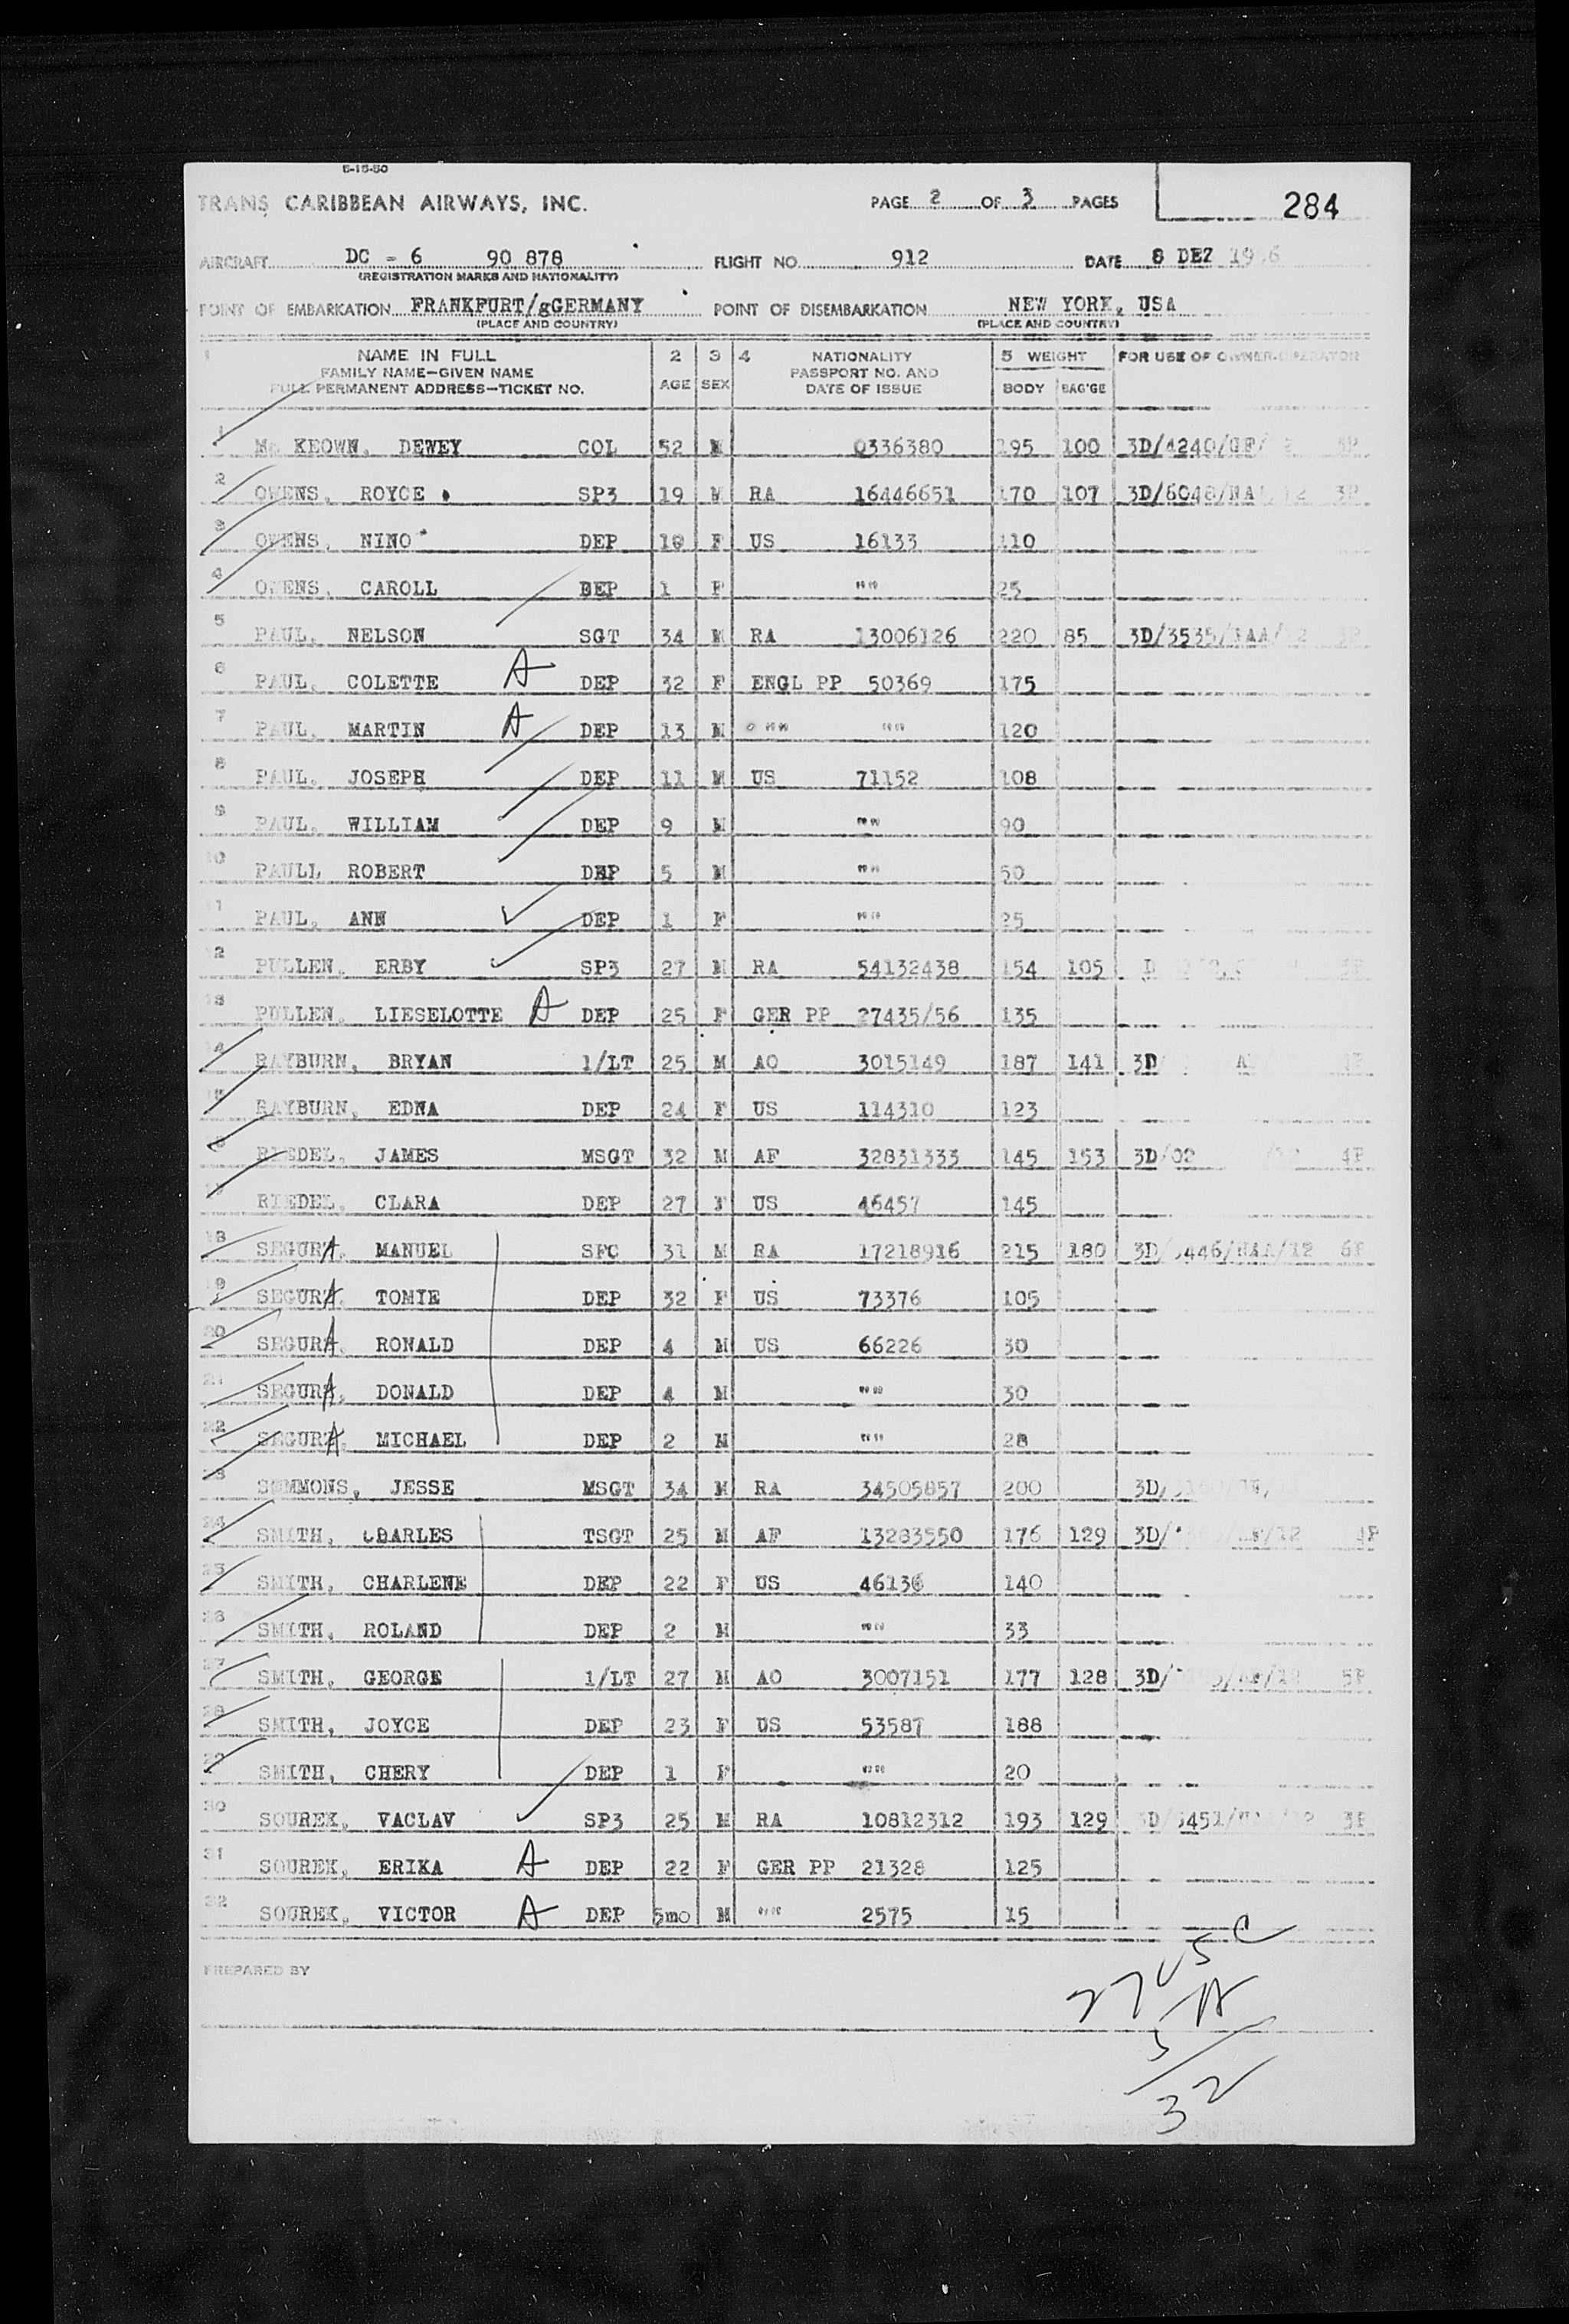 5-15-50
TRANS CARIBBEAN AIRWAYS, INC. PAGE 2 OF 3 PAGES 284
AIRCRAFT DC - 6 90 878 FLIGHT NO 912 DATE 8 DEZ
(REGISTRATION MARKS AND NATIONALITY)
POINT OF EMBARKATION FRANKFURT/gGERMANY POINT OF DISEMBARKATION NEW YORK, USA
(PLACE AND COUNTRY) (PLACE AND COUNTRY)
1 NAME IN FULL 2 3 4 NATIONALITY 5 WEIGHT FOR USE OF OWNER-OPERATOR
FAMILY NAME—GIVEN NAME AGE SEX PASSPORT NO. AND BODY BAG'GE
FULL PERMANENT ADDRESS—TICKET NO. DATE OF ISSUE
1 Mc KEOWN, DEWEY COL 52 M 0336380 195 100 3D/4240/GF/
2 OWENS, ROYCE SP3 19 M RA 16446651 170 107 3D/6048/NAA/12 3P
3 OWENS, NINO DEP 18 F US 16133 110
4 OWENS, CAROLL DEP 1 F "" 25
5 PAUL, NELSON SGT 34 M RA 13006126 220 85 3D/3535/NAA/12
6 PAUL, COLETTE A DEP 32 F ENGL PP 50369 175
7 PAUL, MARTIN A DEP 13 M "" "" 120
8 PAUL, JOSEPH DEP 11 M US 71152 108
9 PAUL, WILLIAM DEP 9 M "" 90
10 PAULL ROBERT DEP 5 M "" 50
11 PAUL, ANN DEP 1 F "" 25
12 PULLEN, ERBY SP3 27 M RA 54132438 154 105
13 PULLEN, LIESELOTTE A DEP 25 F GER PP 27435/56 135
14 RAYBURN, BRYAN 1/LT 25 M AO 3015149 187 141 3D/
15 RAYBURN, EDNA DEP 24 F US 114310 123
16 RIEDEL, JAMES MSGT 32 M AF 32831333 145 153 3D/02 4P
17 RIEDEL, CLARA DEP 27 F US 46457 145
18 SEGURA, MANUEL SFC 31 M RA 17218916 215 180 3D/ 446/NAA/12 6P
19 SEGURA, TOMIE DEP 32 F US 73376 105
20 SEGURA, RONALD DEP 4 M US 66226 30
21 SEGURA, DONALD DEP 4 M "" 30
22 SEGURA, MICHAEL DEP 2 M "" 28
23 SEMMONS, JESSE MSGT 34 M RA 34505857 200 3D/
24 SMITH, CHARLES TSGT 25 M AF 13283550 176 129 3D/ /12 4P
25 SMITH, CHARLENE DEP 22 F US 46136 140
26 SMITH, ROLAND DEP 2 M "" 33
27 SMITH, GEORGE 1/LT 27 M AO 3007151 177 128 3D/ 5P
28 SMITH, JOYCE DEP 23 F US 53587 188
29 SMITH, CHERY DEP 1 F "" 20
30 SOUREK, VACLAV SP3 25 M RA 10812312 193 129 3D/ 451/ 3P
31 SOUREK, ERIKA A DEP 22 F GER PP 21328 125
32 SOUREK, VICTOR A DEP 5mo M "" 2575 15
PREPARED BY
27 USC
5 A
32